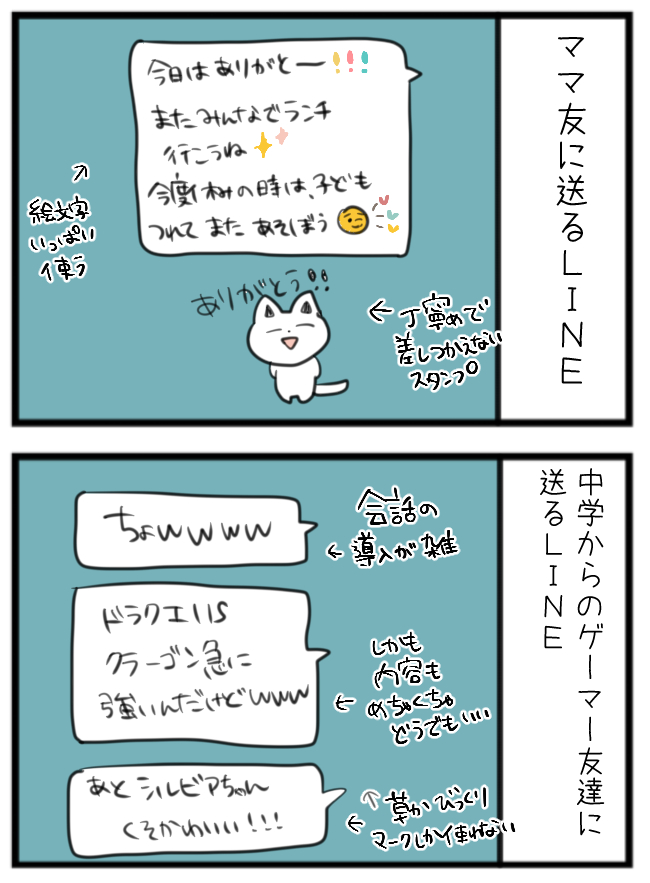 ママ友に送るLINE
今日はありがとー!!!
またみんなでランチ
行こうね
今度休みの時は、子ども
つれてまたあそぼう
絵文字
いっぱい
使う
ありがとう!!
← 丁寧めで
差しつかえない
スタンプ
中学からのゲーマー友達に
送るLINE
ちょwwww
会話の
← 導入が雑
ドラクエ11S
クラーゴン急に
強いんだけどwww
しかも
内容も
← めちゃくちゃ
どうでもいい
あとシルビアちゃん
くそかわいい!!!
↑ 草かびっくり
← マークしか使わない